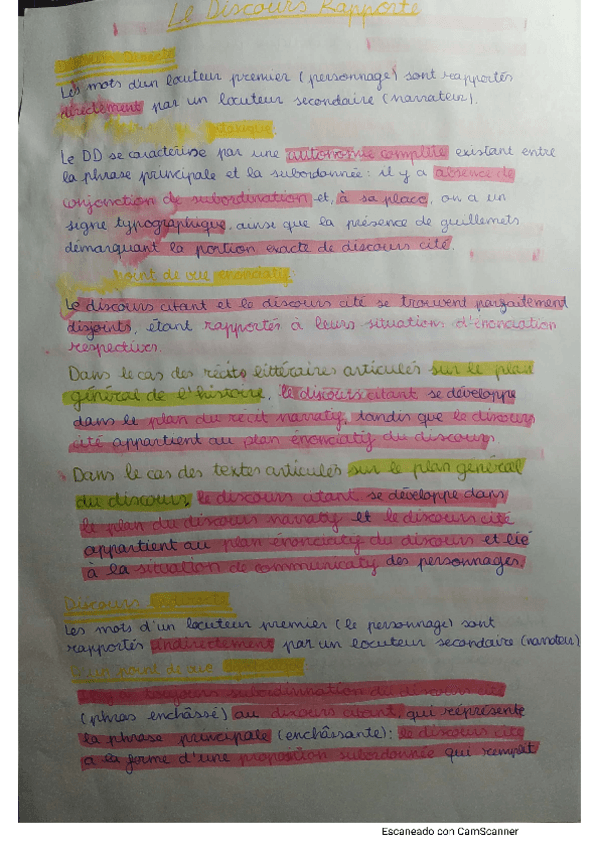 Le Discours Rapporté
Discours Directe
Les mots d'un locuteur premier (personnage) sont rapportés
directement par un locuteur secondaire (narrateur).
Le DD se caractérise par une autonomie complète existant entre
la phrase principale et la subordonnée: il y a absence de
conjonction de subordination et, à sa place, on a un
signe typographique, ainsi que la présence de guillemets
démarquant la portion exacte de discours cité.
point de vue énonciatif
Le discours citant et le discours cité se trouvent parfaitement
disjoints, étant rapportés à leurs situation d'énonciation
respectives.
Dans le cas des récits littéraires articulés sur le plan
général de l'histoire, le discours citant se développe
dans le plan du récit narratif, tandis que le discours
cité appartient au plan énonciatif du discours
Dans le cas des textes articulés sur le plan général
du discours, le discours citant se développe dans
le plan du discours narratif et le discours cité
appartient au plan énonciatif du discours et lié
à la situation de communicaty des personnages.
Discours Indirecte
Les mots d'un locuteur premier (le personnage) sont
rapportés indirectement par un locuteur secondaire (narrateur)
point de vue
toujours subordinnation du discours cité
(phras enchâssé) au discours citant, qui réprésente
la phrase principale (enchâssante): le discours cité
a la forme d'une proposition subordonnée qui remplit
Escaneado con CamScanner